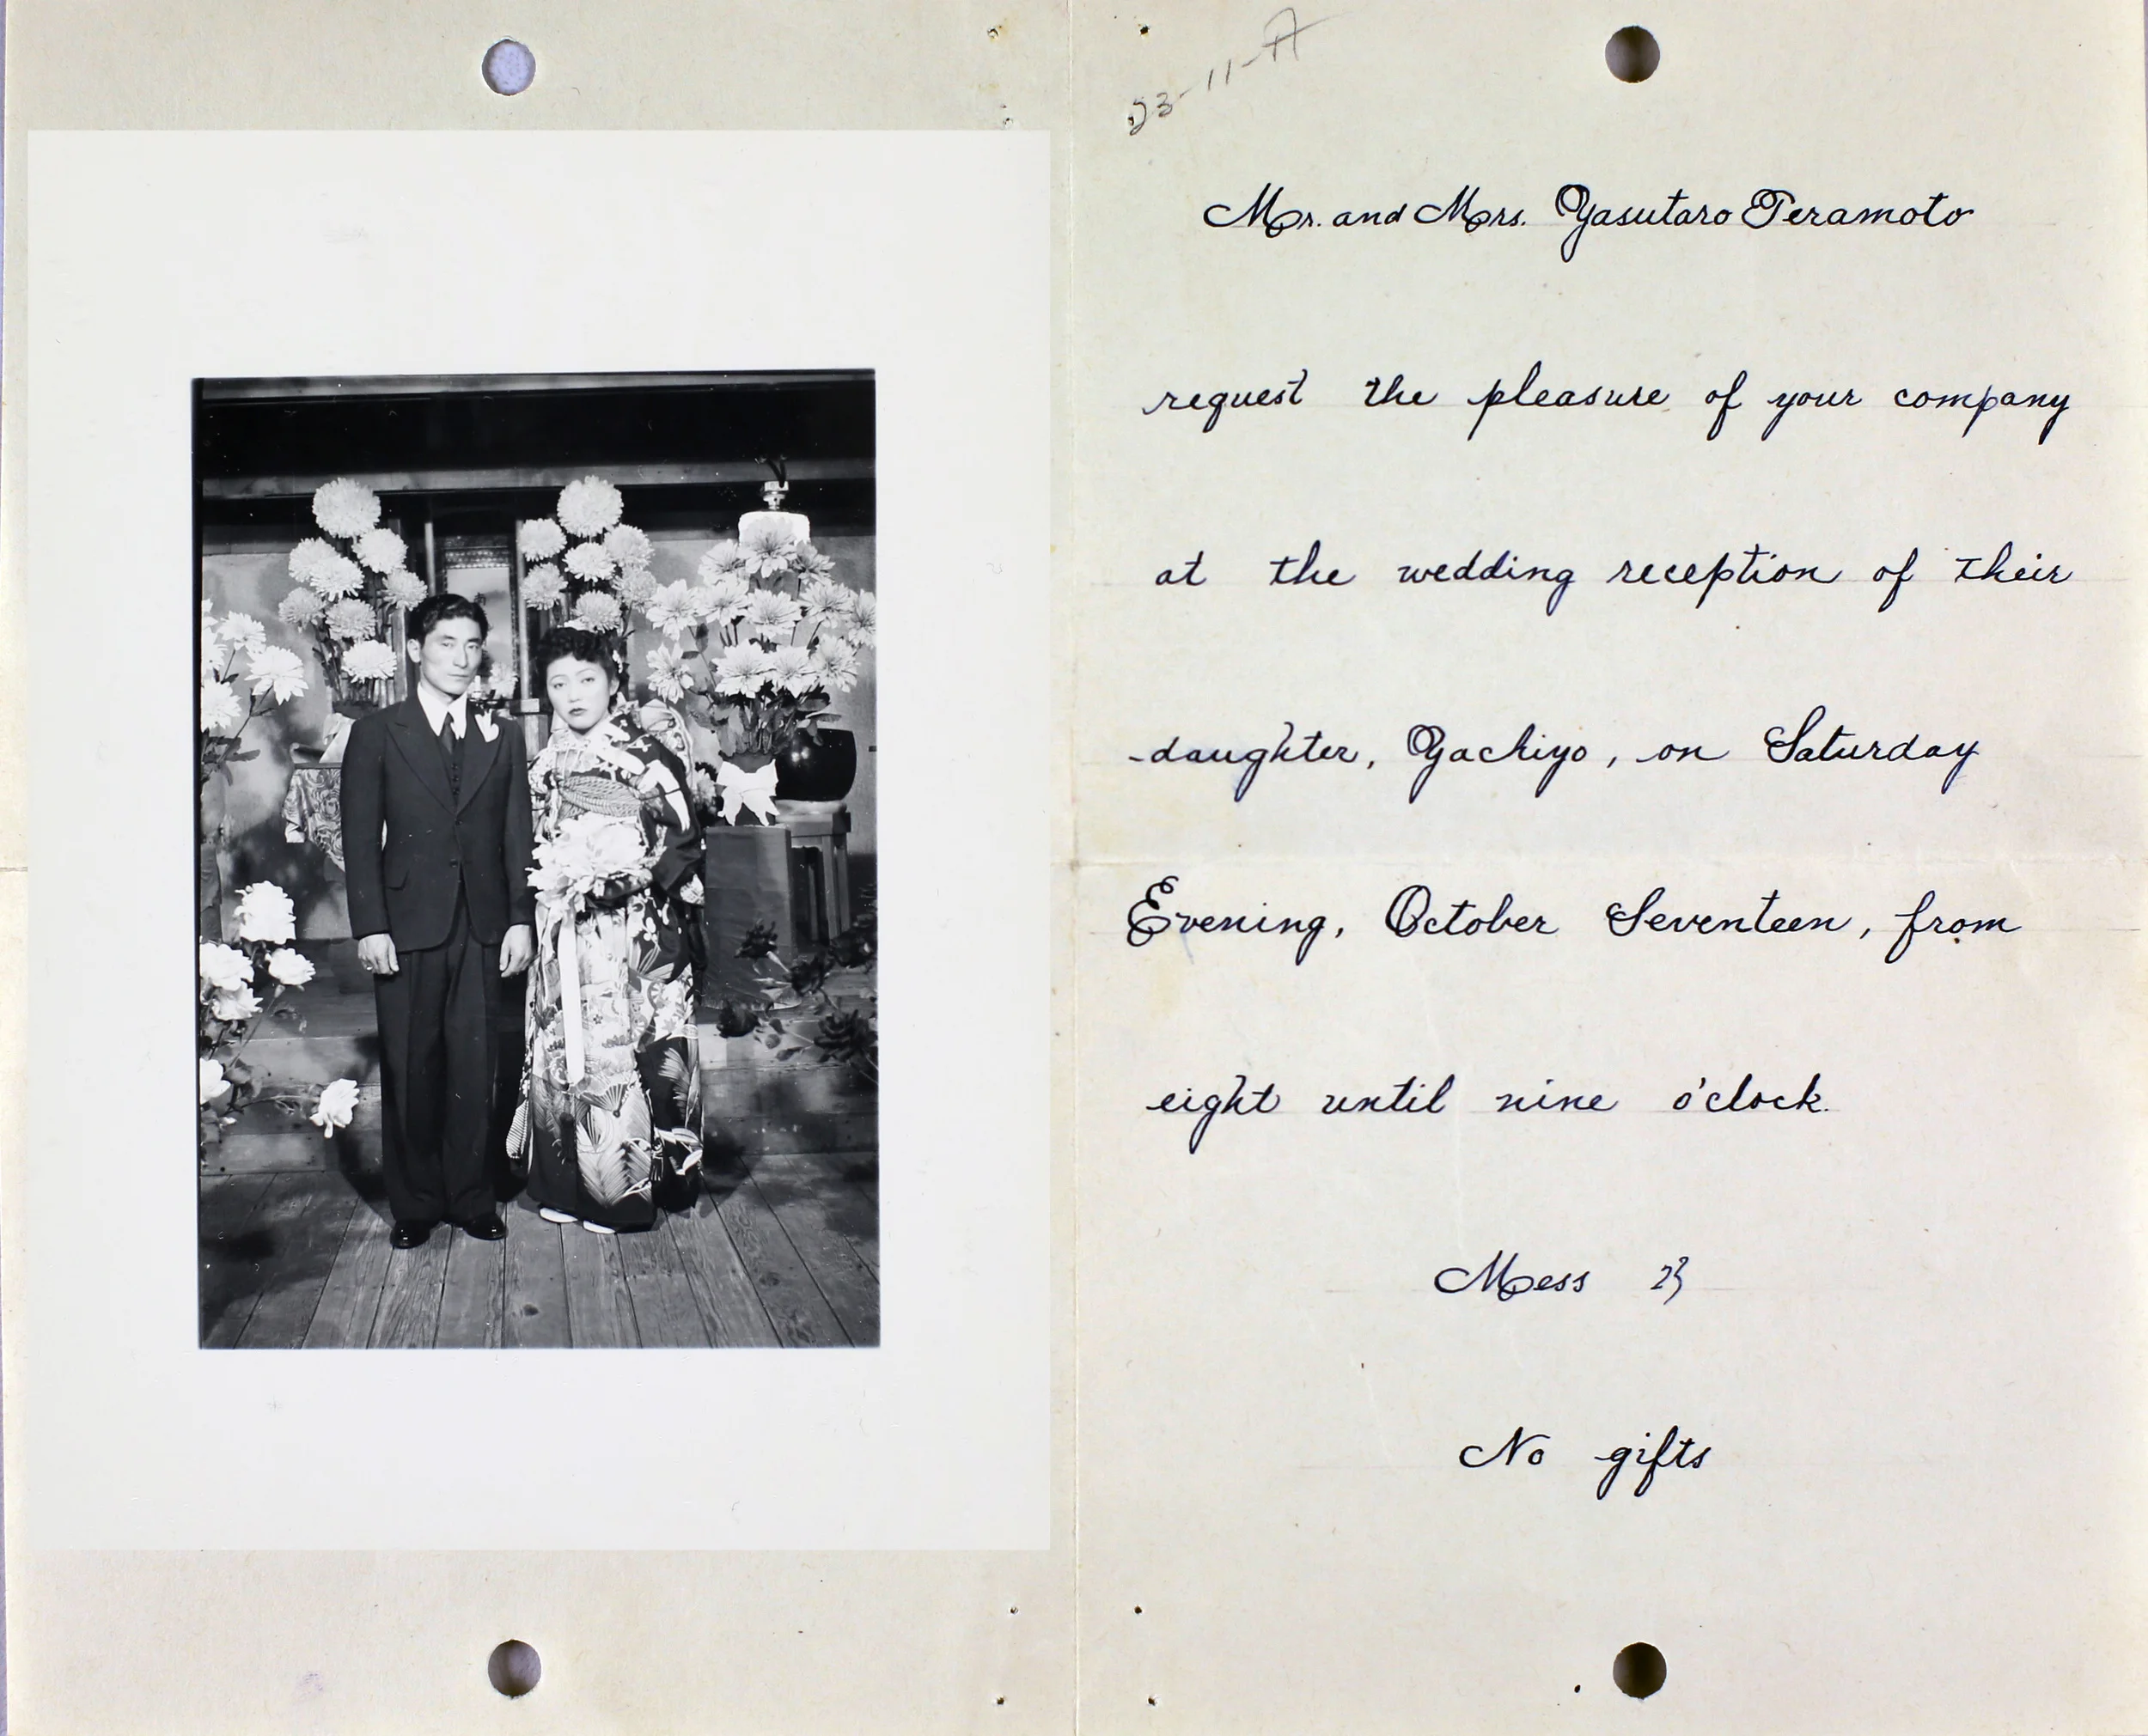 23-11-A
Mr. and Mrs. Yasutaro Teramoto
request the pleasure of your company
at the wedding reception of their
daughter, Yachiyo, on Saturday
Evening, October Seventeen, from
eight until nine o'clock.
Mess 23
No gifts